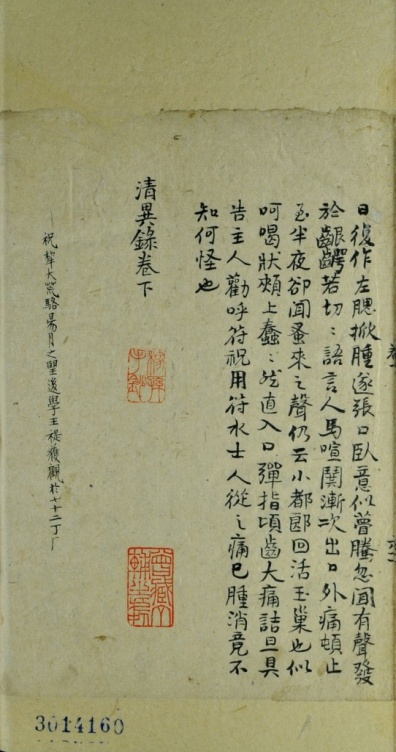 日復作左腮掀腫遂張口臥意似瞢騰忽聞有聲發
於齦齶若切〻語言人馬喧鬨漸次出口外痛頓止
至半夜卻聞蚤來之聲仍云小都郎回活玉巢也似
呵喝狀頰上蠢〻然直入口彈指頃齒大痛詰旦具
告主人勸呼符祝用符水士人從之痛已腫消竟不
知何怪也
清異錄卷下
祝犂大荒駱昜月之望後學王禔獲觀於七十二丁厂
3014160